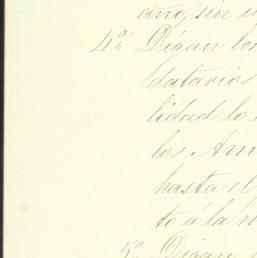 año, sin in
4ª Digan los
datarios
lidad lo
los Am
hasta el
to á la n
5ª Digan